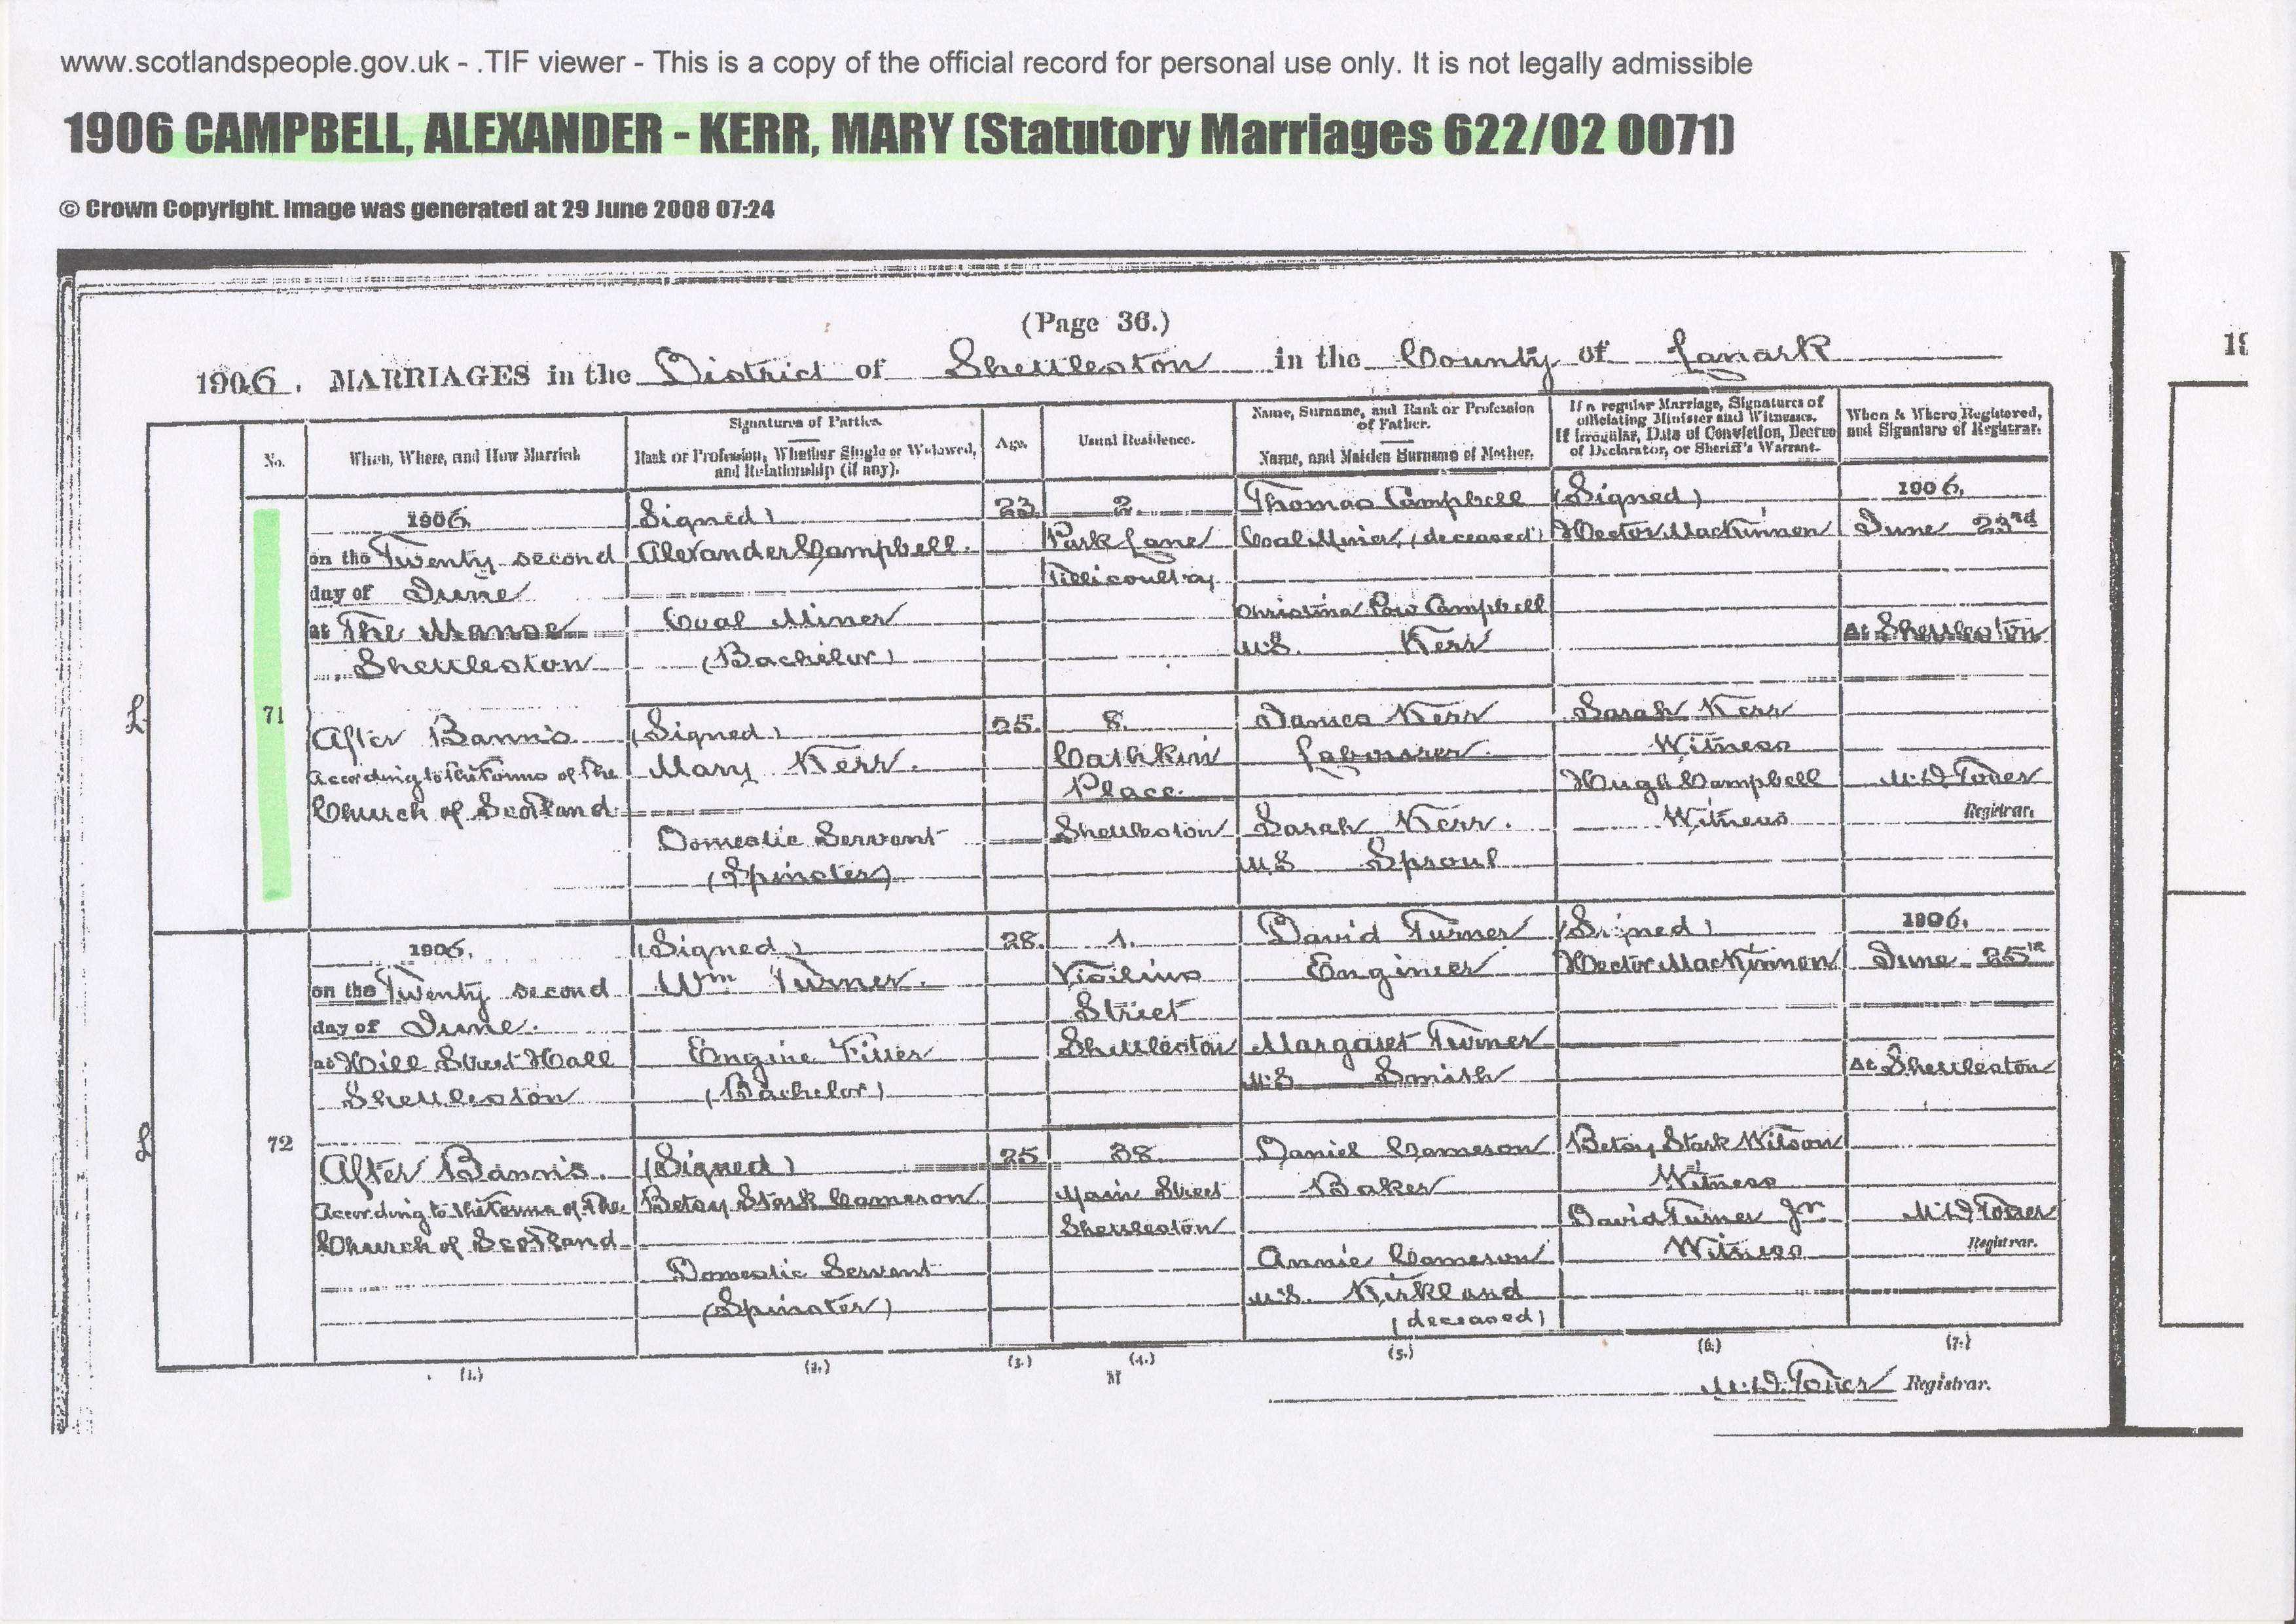 www.scotlandspeople.gov.uk - .TIF viewer - This is a copy of the official record for personal use only. It is not legally admissible
1906 CAMPBELL, ALEXANDER - KERR, MARY (Statutory Marriages 622/02 0071)
© Crown Copyright. Image was generated at 29 June 2008 07:24
(Page 36.)
1906. MARRIAGES in the District of Shettleston in the County of Lanark
No.
When, Where, and How Married.
Signatures of Parties.
Rank or Profession, Whether Single or Widowed, and Relationship (if any).
Age.
Usual Residence.
Name, Surname, and Rank or Profession of Father.
Name, and Maiden Surname of Mother.
If a regular Marriage, Signatures of
officiating Minister and Witnesses.
If Irregular, Date of Conviction, Decree
of Declarator, or Sheriff's Warrant.
When & Where Registered,
and Signature of Registrar.
71
1906.
on the Twenty second
day of June
at The Manse
Shettleston
After Banns
According to the Forms of the
Church of Scotland
(Signed)
Alexander Campbell.
Coal Miner
(Bachelor)
23.
2.
Park Lane
Tillicoultry
Thomas Campbell
Coal Miner (deceased)
Christina Pow Campbell
M.S. Kerr
(Signed)
Hector MacKinnon
1906.
June 23rd
At Shettleston
(Signed)
Mary Kerr.
Domestic Servant
(Spinster)
25.
8.
Cathkin
Place.
Shettleston
James Kerr
Labourer.
Sarah Kerr.
M.S Sproul
Sarah Kerr
Witness
Hugh Campbell
Witness
Registrar.
72
1906.
on the Twenty second
day of June.
at Hill Street Hall
Shettleston
After Banns.
According to the Forms of the
Church of Scotland
(Signed)
Wm Turner.
Engine Fitter
(Bachelor)
28.
1.
Street
Shettleston
David Turner
Engineer
Margaret Turner
M.S Smith
(Signed)
Hector MacKinnon
1906.
June 25th
At Shettleston
(Signed)
Betsy Stark Cameron
Domestic Servant
(Spinster)
25
38.
Main Street
Shettleston
Daniel Cameron
Baker
Annie Cameron
M.S. Kirkland
(deceased)
Betsy Stark Wilson
Witness
David Turner Jr
Witness
Registrar.
(1.) (2.) (3.) (4.) (5.) (6.) (7.)
M
Registrar.